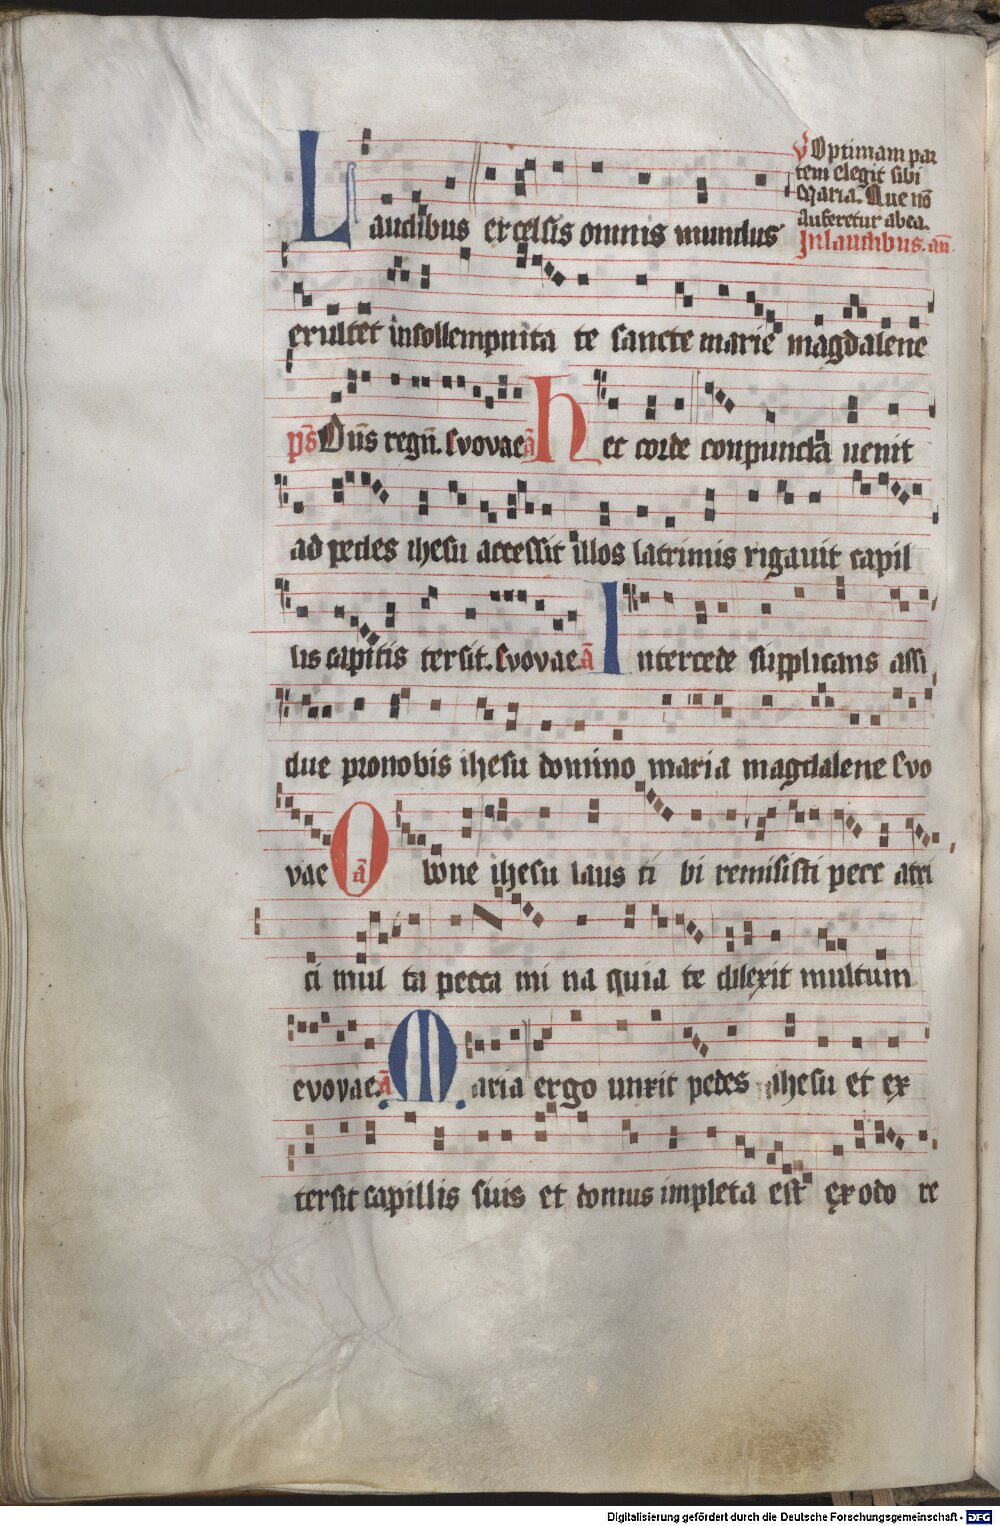 ℣ Optimam par
tem elegit sibi
Maria. Que nō
auferetur ab ea.
In laudibus. an̄.
Laudibus excelsis omnis mundus
exultet in sollempnita te sancte marie magdalene
ps Dn̄s regn̄. Evovae ā Hec corde conpuncta venit
ad pedes ihesu accessit illos lacrimis rigauit capil
lis capitis tersit. Evovae. ā Intercede supplicans assi
due pro nobis ihesu domino maria magdalene Evo
vae ā O bone ihesu laus ti bi remisisti pecc atri
ci mul ta pecca mi na quia te dilexit multum
evovae. ā Maria ergo unxit pedes ihesu et ex
tersit capillis suis et domus impleta est ex odo re
Digitalisierung gefördert durch die Deutsche Forschungsgemeinschaft - DFG